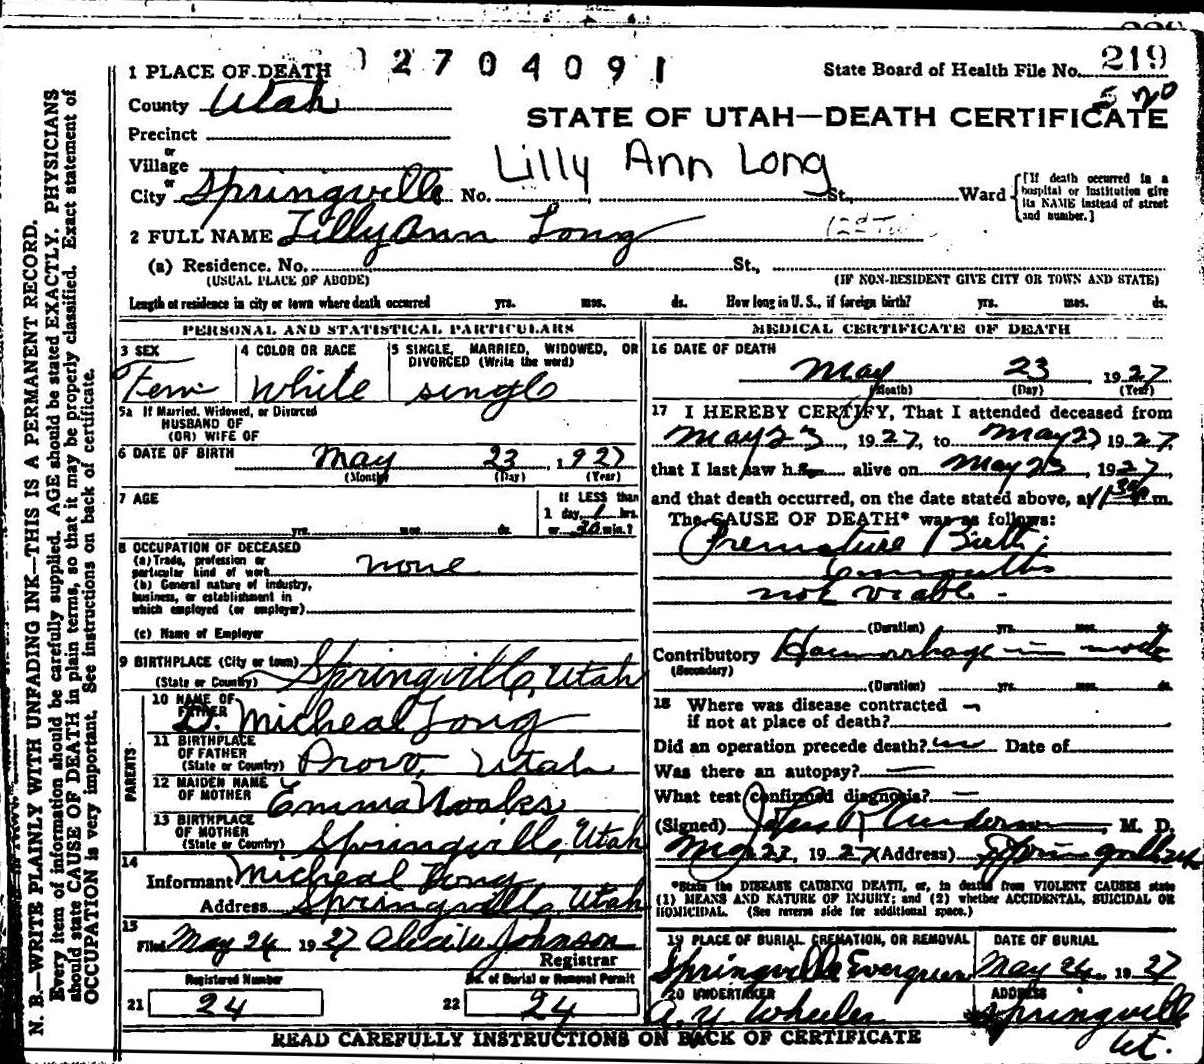 2704091
1 PLACE OF DEATH
State Board of Health File No. 219
County Utah
5 20
STATE OF UTAH—DEATH CERTIFICATE
Precinct
or
Village
Lilly Ann Long
or
City Springville No. St., Ward [If death occurred in a hospital or institution give its NAME instead of street and number.]
2 FULL NAME Lilly Ann Long
(a) Residence. No. St.,
(USUAL PLACE OF ABODE) (IF NON-RESIDENT GIVE CITY OR TOWN AND STATE)
Length of residence in city or town where death occurred yrs. mos. ds. How long in U. S., if foreign birth? yrs. mos. ds.
PERSONAL AND STATISTICAL PARTICULARS
3 SEX
Fem
4 COLOR OR RACE
White
5 SINGLE, MARRIED, WIDOWED, OR DIVORCED (Write the word)
single
5a If Married, Widowed, or Divorced
HUSBAND OF
(OR) WIFE OF
6 DATE OF BIRTH May 23, 1927
(Month) (Day) (Year)
7 AGE
yrs. mos. ds.
If LESS than
1 day, 1 hrs.
or 30 min.?
8 OCCUPATION OF DECEASED
(a) Trade, profession or
particular kind of work none
(b) General nature of industry,
business, or establishment in
which employed (or employer)
(c) Name of Employer
9 BIRTHPLACE (City or town)
(State or Country) Springville, Utah
PARENTS
10 NAME OF
FATHER D. Micheal Long
11 BIRTHPLACE
OF FATHER
(State or Country) Provo, Utah
12 MAIDEN NAME
OF MOTHER Emma Noakes
13 BIRTHPLACE
OF MOTHER
(State or Country) Springville, Utah
14
Informant Micheal Long
Address Springville, Utah
15
Filed May 24 1927 Johnson
Registrar
Registered Number
21 24
No. of Burial or Removal Permit
22 24
MEDICAL CERTIFICATE OF DEATH
16 DATE OF DEATH
May 23 1927
(Month) (Day) (Year)
17 I HEREBY CERTIFY, That I attended deceased from
May 23, 1927, to May 23 1927,
that I last saw h alive on May 23, 1927
and that death occurred, on the date stated above, at 11 30 p m.
The CAUSE OF DEATH* was as follows:
Premature Birth;
6 months
not viable.
(Duration) yrs. mos. ds.
Contributory Haemorrhage in
(Secondary)
(Duration) yrs. mos. ds.
18 Where was disease contracted
if not at place of death?
Did an operation precede death? no Date of
Was there an autopsy? —
What test confirmed diagnosis? —
(Signed) Anderson, M. D.
May 23, 1927 (Address) Springville
*State the DISEASE CAUSING DEATH, or, in deaths from VIOLENT CAUSES state
(1) MEANS AND NATURE OF INJURY; and (2) whether ACCIDENTAL, SUICIDAL OR
HOMICIDAL. (See reverse side for additional space.)
19 PLACE OF BURIAL, CREMATION, OR REMOVAL
Springville Evergreen
DATE OF BURIAL
May 24 1927
20 UNDERTAKER
A. Y. Wheeler
ADDRESS
Springville
Ut.
READ CAREFULLY INSTRUCTIONS ON BACK OF CERTIFICATE
N. B.—WRITE PLAINLY WITH UNFADING INK—THIS IS A PERMANENT RECORD.
Every item of information should be carefully supplied. AGE should be stated EXACTLY. PHYSICIANS
should state CAUSE OF DEATH in plain terms, so that it may be properly classified. Exact statement of
OCCUPATION is very important. See instructions on back of certificate.